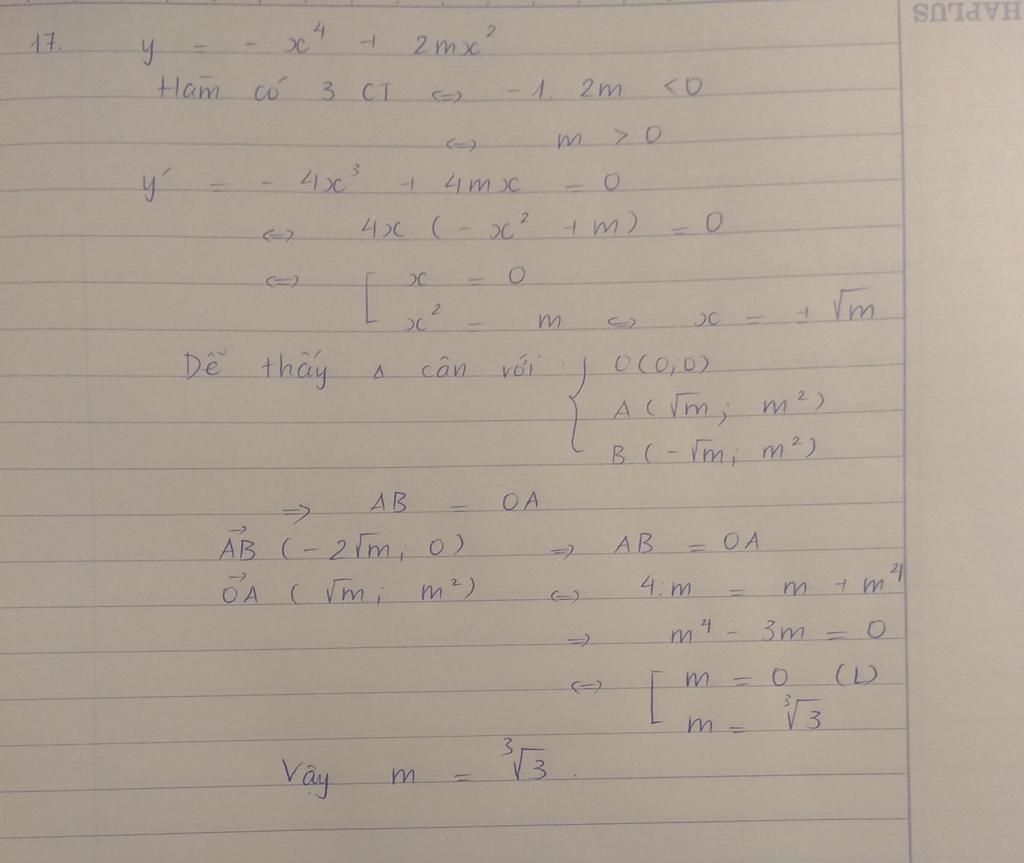 HAPLUS
17. y = - x⁴ + 2mx²
Hàm có 3 CT ⇔ - 1. 2m < 0
⇔ m > 0
y' = - 4x³ + 4mx = 0
⇔ 4x ( - x² + m ) = 0
⇔ [ x = 0
x² = m ⇔ x = ± √m
Dễ thấy Δ cân với { O(0;0)
A ( √m ; m² )
B ( - √m ; m² )
⇒ AB = OA
A⃗B ( - 2√m ; 0 ) ⇒ AB = OA
O⃗A ( √m ; m² ) ⇔ 4.m = m + m⁴
⇒ m⁴ - 3m = 0
⇔ [ m = 0 (L)
m = ³√3
Vậy m = ³√3 .